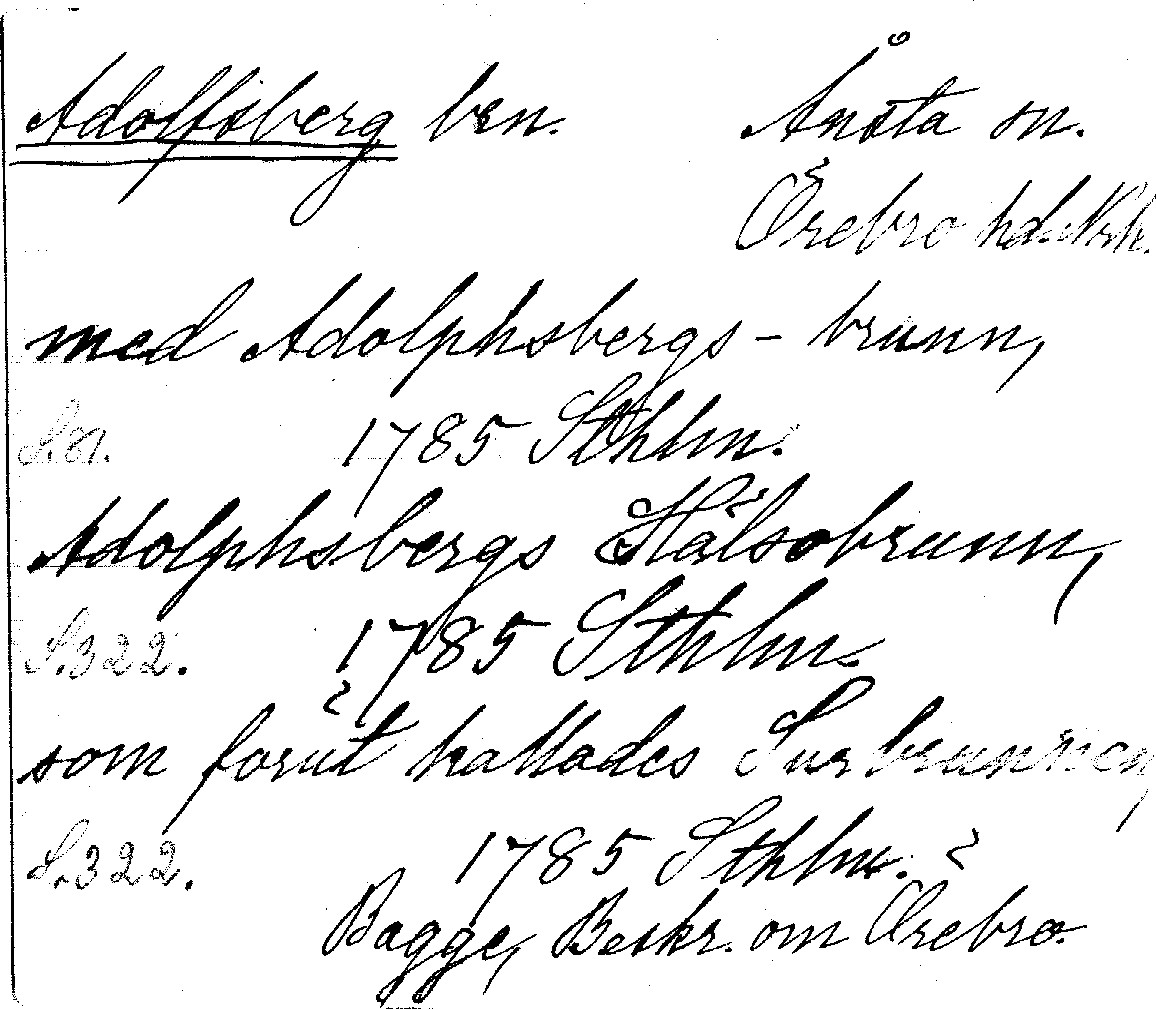 Adolfsberg brn. Ånsta sn.
Örebro hd. Nrk.
med Adolphsbergs - brunn,
S. 81. 1785 Sthlm.
Adolphsbergs Hälsobrunn,
S. 322. 1785 Sthlm.
som förut kallades Surbrunnen,
S. 322. 1785 Sthlm.
Bagge, Beskr. om Örebro.